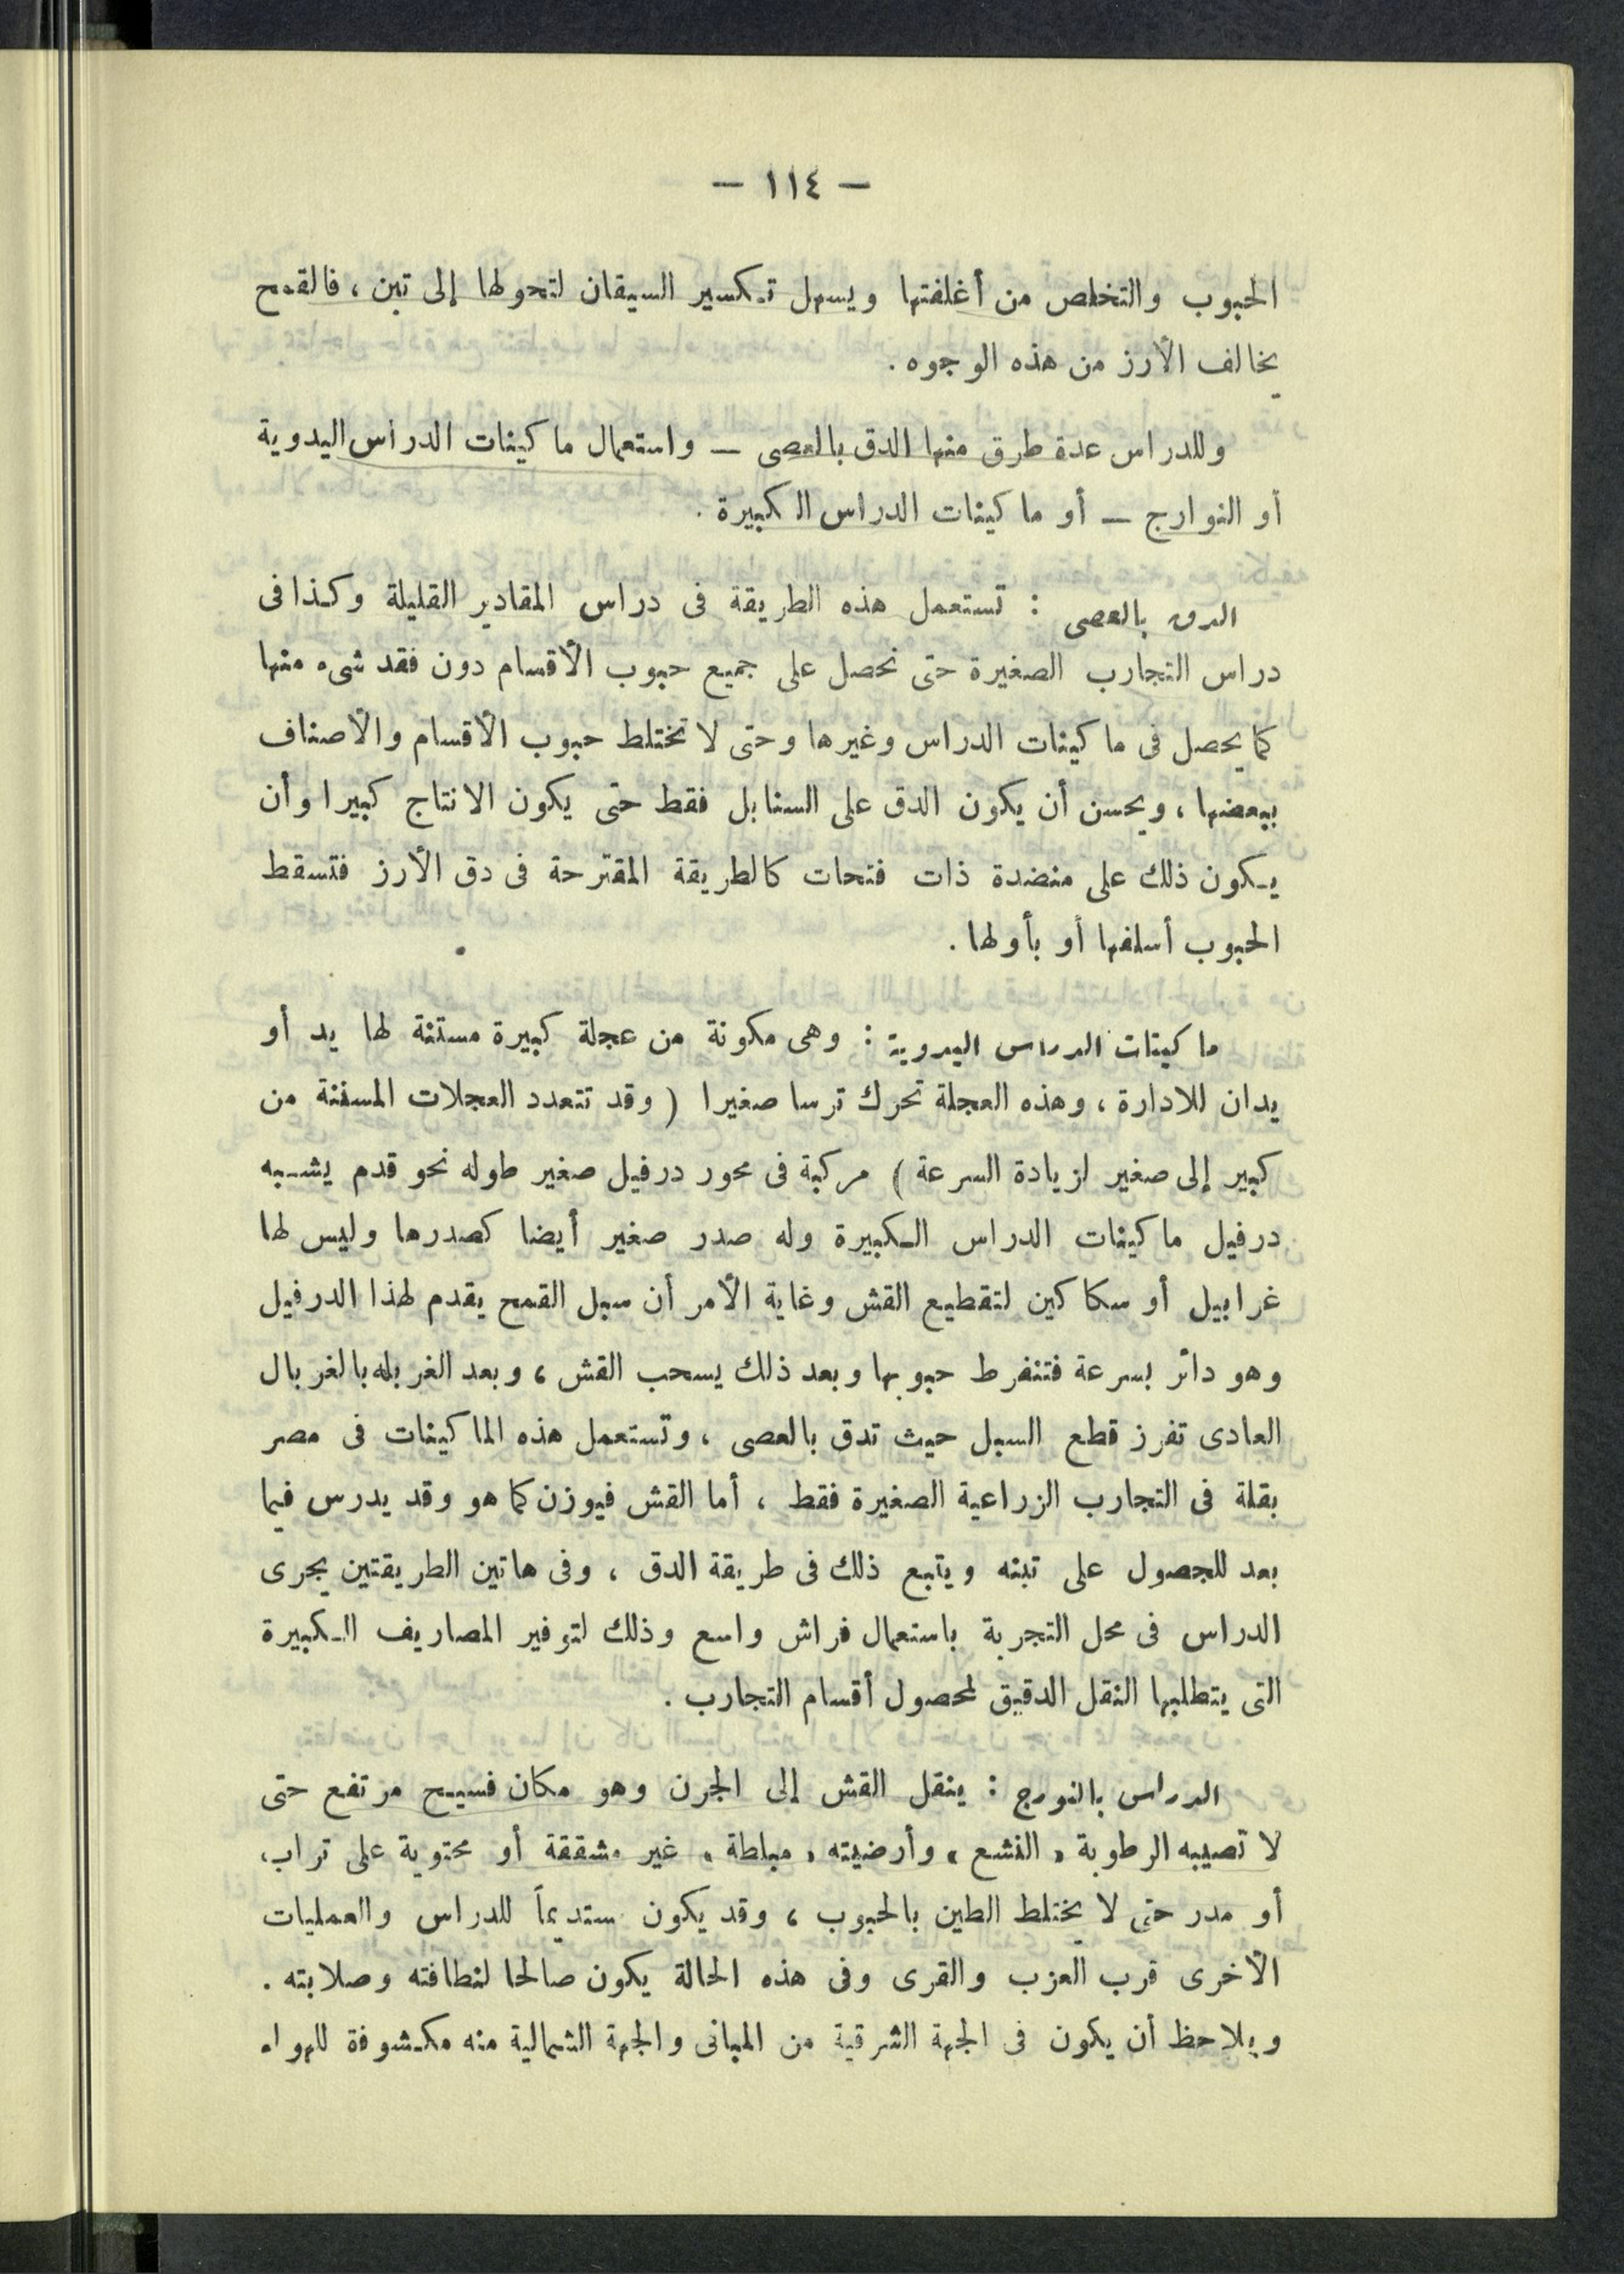 — ١١٤ —
الحبوب والتخلص من أغلفتها ويسهل تكسير السيقان لتحولها إلى تبن ، فالقمح
يخالف الأرز من هذه الوجوه .
وللدراس عدة طرق منها الدق بالعصى — واستعمال ماكينات الدراس اليدوية
أو النوارج — أو ماكينات الدراس الكبيرة .
الدق بالعصى : تستعمل هذه الطريقة فى دراس المقادير القليلة وكذا فى
دراس التجارب الصغيرة حتى نحصل على جميع حبوب الأقسام دون فقد شىء منها
كما يحصل فى ماكينات الدراس وغيرها وحتى لا تختلط حبوب الأقسام والأصناف
ببعضها ، ويحسن أن يكون الدق على السنابل فقط حتى يكون الانتاج كبيرا وأن
يكون ذلك على منضدة ذات فتحات كالطريقة المقترحة فى دق الأرز فتسقط
الحبوب أسلفها أو بأولها .
ماكينات الدراس اليدوية : وهى مكونة من عجلة كبيرة مستنة لها يد أو
يدان للادارة ، وهذه العجلة تحرك ترسا صغيرا ( وقد تتعدد العجلات المسننة من
كبير إلى صغير لزيادة السرعة ) مركبة فى محور درفيل صغير طوله نحو قدم يشبه
درفيل ماكينات الدراس الكبيرة وله صدر صغير أيضا كصدرها وليس لها
غرابيل أو سكاكين لتقطيع القش وغاية الأمر أن سبل القمح يقدم لهذا الدرفيل
وهو دائر بسرعة فتنفرط حبوبها وبعد ذلك يسحب القش ، وبعد الغربله بالغربال
العادى تفرز قطع السبل حيث تدق بالعصى ، وتستعمل هذه الماكينات فى مصر
بقلة فى التجارب الزراعية الصغيرة فقط ، أما القش فيوزن كما هو وقد يدرس فيما
بعد للحصول على تبنه ويتبع ذلك فى طريقة الدق ، وفى هاتين الطريقتين يجرى
الدراس فى محل التجربة باستعمال فراش واسع وذلك لتوفير المصاريف الكبيرة
التى يتطلبها النقل الدقيق لمحصول أقسام التجارب .
الدراس بالنورج : ينقل القش إلى الجرن وهو مكان فسيح مرتفع حتى
لا تصيبه الرطوبة « النشع » وأرضيته « مبلطة » غير مشققة أو محتوية على تراب ،
أو مدر حتى لا يختلط الطين بالحبوب ، وقد يكون مستديماً للدراس والعمليات
الأخرى قرب العزب والقرى وفى هذه الحالة يكون صالحا لنظافته وصلابته .
ويلاحظ أن يكون فى الجهة الشرقية من المبانى والجهة الشمالية منه مكشوفة للهواء